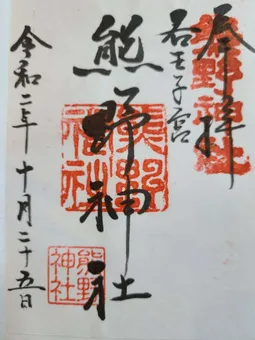 奉拝
熊野神社
若王子宮
熊野神社
熊野神社
熊野神社
令和二年十月二十五日